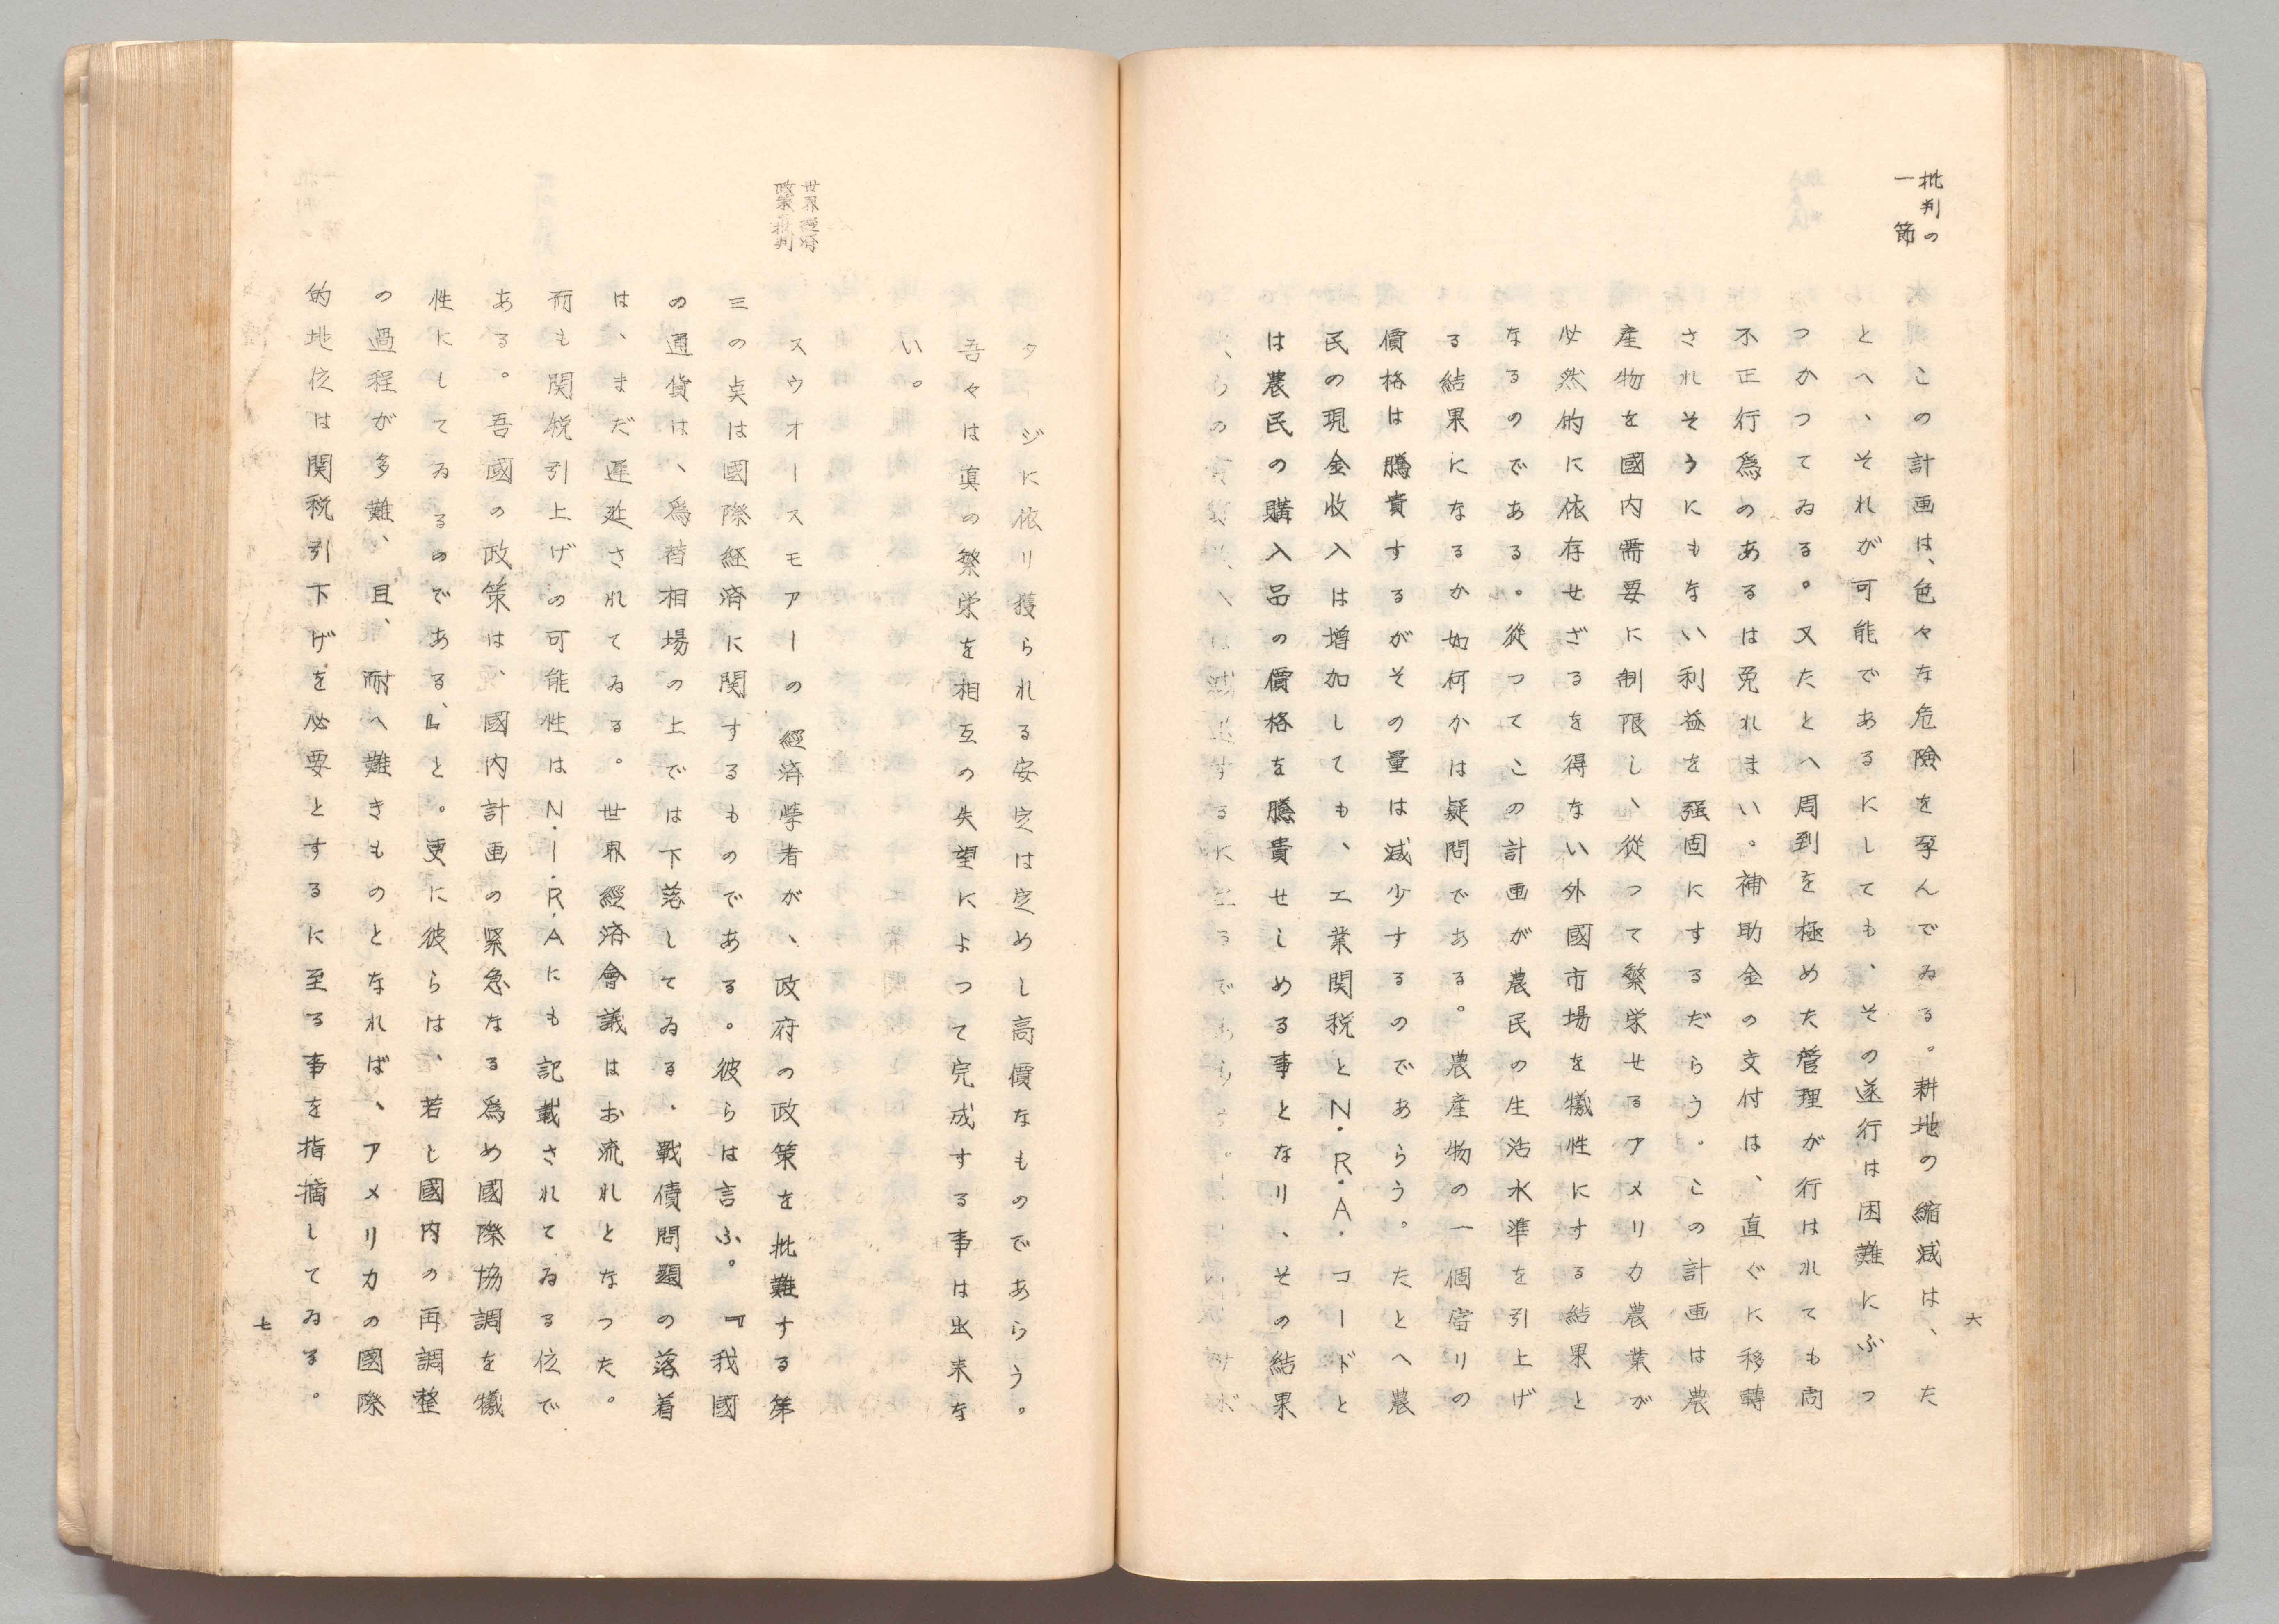 批判の
一節
この計画は、色々な危險を孕んでゐる。耕地の縮減は、た
とへ、それが可能であるにしても、その遂行は困難にぶつ
つかつてゐる。又たとへ周到を極めた管理が行はれても尚
不正行爲のあるは免れまい。補助金の交付は、直ぐに移轉
されそうにもない利益を强固にするだらう。この計画は農
産物を國内需要に制限し、從つて繁栄せるアメリカ農業が
必然的に依存せざるを得ない外國市場を犠性にする結果と
なるのである。從つてこの計画が農民の生活水準を引上げ
る結果になるか如何かは疑問である。農産物の一個當りの
價格は騰貴するがその量は減少するのであらう。たとへ農
民の現金收入は増加しても、工業関税とN.R.A.コードと
は農民の購入品の價格を騰貴せしめる事となり、その結果
六
タージに依リ獲られる安定は定めし高價なものであらう。
吾々は真の繁栄を相互の失望によつて完成する事は出来な
い。
世界經済
政策批判
スウオースモアーの經済學者が、政府の政策を批難する第
三の点は國際経済に関するものである。彼らは言ふ。『我國
の通貨は、爲替相場の上では下落してゐる.戰債問題の落着
は、まだ遅延されてゐる。世界經済會議はお流れとなつた。
而も関税引上げの可能性はN.I.R.Aにも記載されてゐる位で
ある。吾國の政策は、國内計画の緊急なる爲め國際協調を犠
性にしてゐるのである、』と。更に彼らは、若し國内の再調整
の過程が多難、且、耐へ難きものとなれば、アメリカの國際
的地位は関税引下げを必要とするに至る事を指摘してゐる。
七